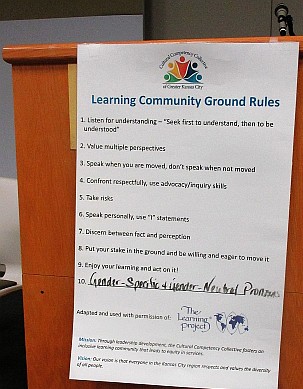 Cultural Competency Collective
of Greater Kansas City
Learning Community Ground Rules
1. Listen for understanding – "Seek first to understand, then to be
understood"
2. Value multiple perspectives
3. Speak when you are moved, don't speak when not moved
4. Confront respectfully, use advocacy/inquiry skills
5. Take risks
6. Speak personally, use "I" statements
7. Discern between fact and perception
8. Put your stake in the ground and be willing and eager to move it
9. Enjoy your learning and act on it!
10. Gender-Specific & Gender-Neutral Pronouns
Adapted and used with permission of:
The
Learning
project
Mission: Through leadership development, the Cultural Competency Collective fosters an
inclusive learning community that leads to equity in services.
Vision: Our vision is that everyone in the Kansas City region respects and values the diversity
of all people.